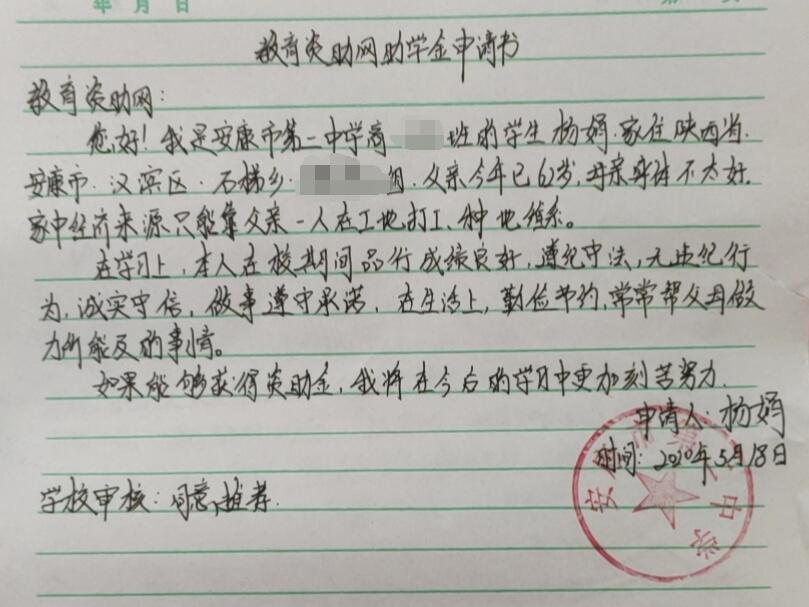 年 月 日
教育资助网助学金申请书
教育资助网：
您好！我是安康市第二中学高 班的学生杨娟.家住陕西省.
安康市.汉滨区.石梯乡. 组.父亲今年已62岁,母亲身体不太好.
家中经济来源只能靠父亲一人在工地打工、种地维系。
在学习上,本人在校期间品行成绩良好,遵纪守法,无违纪行
为,诚实守信,做事遵守承诺,在生活上,勤俭节约,常常帮父母做
力所能及的事情。
如果能够获得资助金,我将在今后的学习中更加刻苦努力.
申请人:杨娟
时间:2020年5月18日
学校审核:同意,推荐.
安 市第二中学